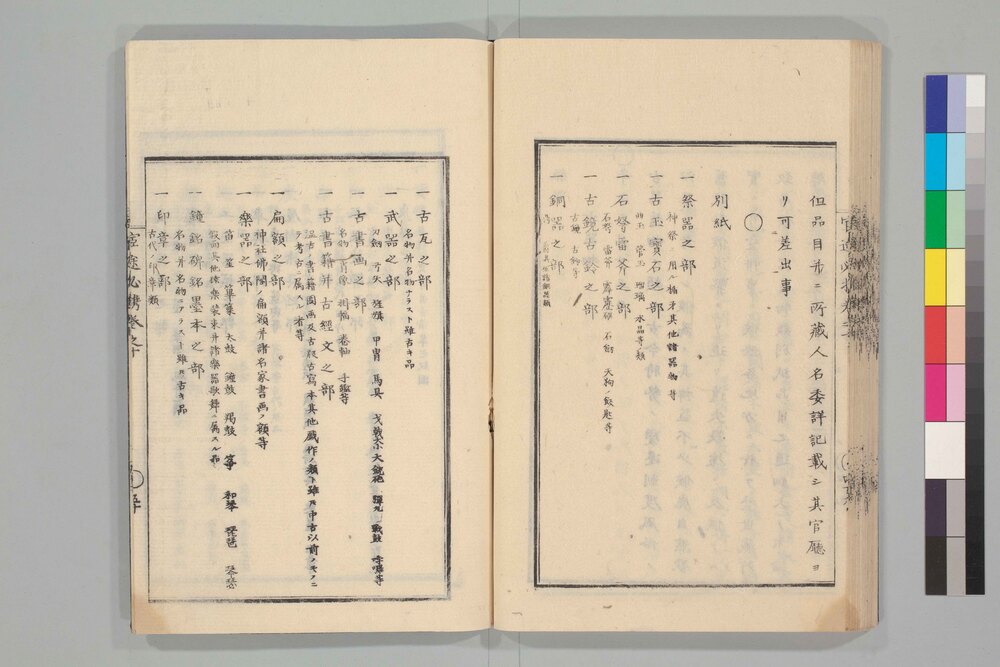 但品目并ニ所藏人名委詳記載シ其官廳ヨ
リ可差出事
○
別紙
一 祭器之部
神祭ニ用ル楯矛其他諸器物等
一 古玉寳石之部
曲玉 管玉 瑠璃 水晶等ノ類
一 石弩雷斧之部
石弩 雷斧 霹靂碪 石劔 天狗ノ飯匙等
一 古鏡古鈴之部
古鏡 古鈴等
一 銅器之部
一 古瓦之部
名物并名物ナラスト雖古キ品
一 武器之部
刀劔 弓矢 旌旗 甲冑 馬具 戈戟 大小銃砲 彈丸 戰鼓 哱囉等
一 古書画之部
名物 肖像 掛幅 卷軸 手鑑等
一 古書籍并古經文之部
温古ノ書籍圖画及古版古寫本其他戯作ノ類ト雖𪜈中古以前ノモノニ
テ考古ニ属スル者等
一 扁額之部
神社佛閣ノ扁額并諸名家書画ノ額等
一 樂器之部
笛 笙 篳篥 太鼓 鐘鼓 羯鼓 箏 和琴 琵琶 琴瑟
假面其他猿樂装束并諸樂器歌舞ニ属スル品
一 鐘銘碑銘墨本之部
名物并名物ニアラスト雖𪜈古キ品
一 印章之部
古代ノ印章類